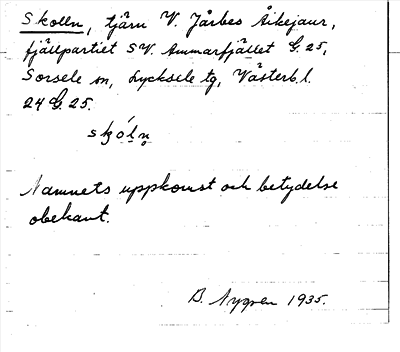 Skolln, tjärn V. Jårbes Äikejaur,
fjällpartiet SV. Ammarfjället G. 25,
Sorsele sn, Lycksele tg, Västerb. l.
24 G. 25.
skóln
Namnets uppkomst och betydelse
obekant.
B. Nygren 1935.